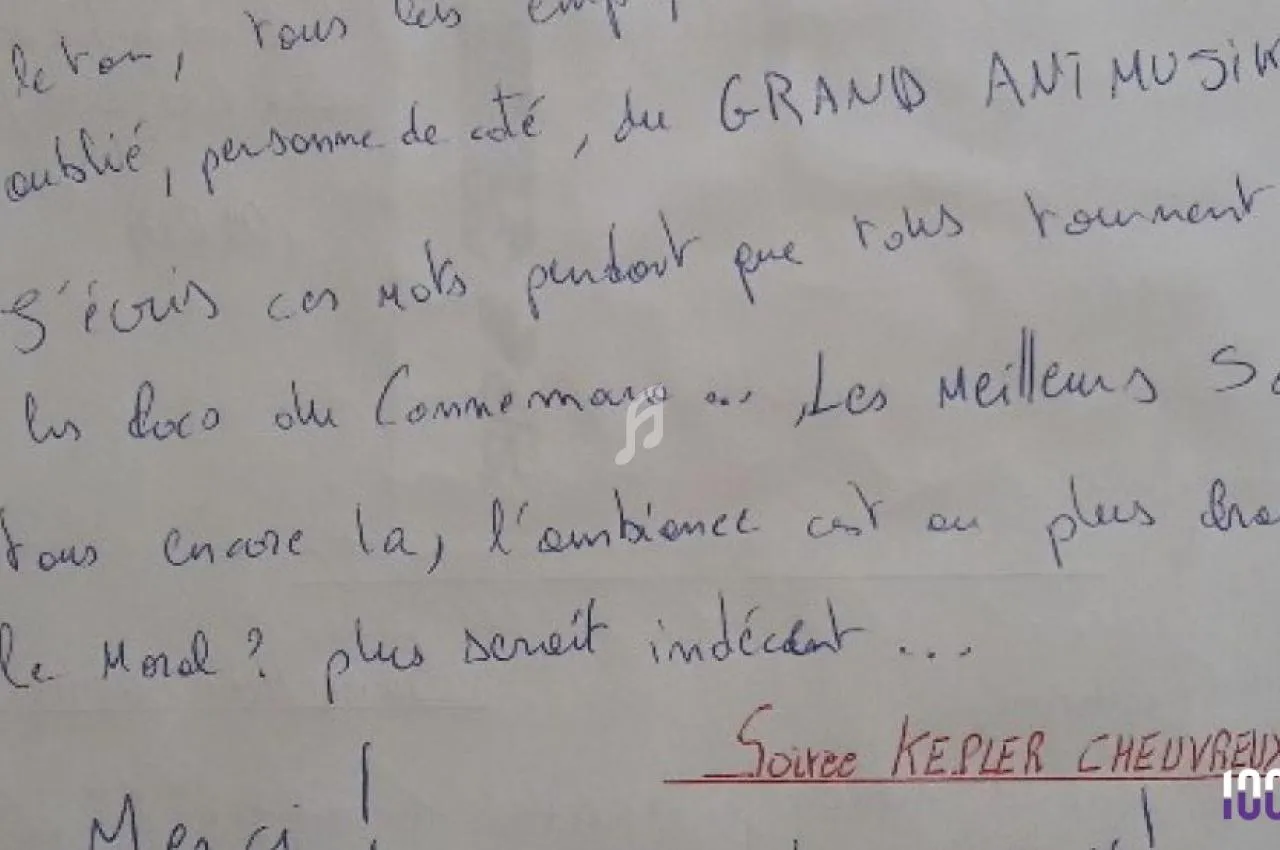 le ton, tous les
oublié, personne de coté, du GRAND ANIMUSIK
J'écris ces mots pendant que tous tournent
les Locs du Connemara ... Les Meilleurs
tous encore la, l'ambiance est au plus
le Moral ? plus serait indécent ...
Soirée KEPLER CHEUVREUX
Merci !
100